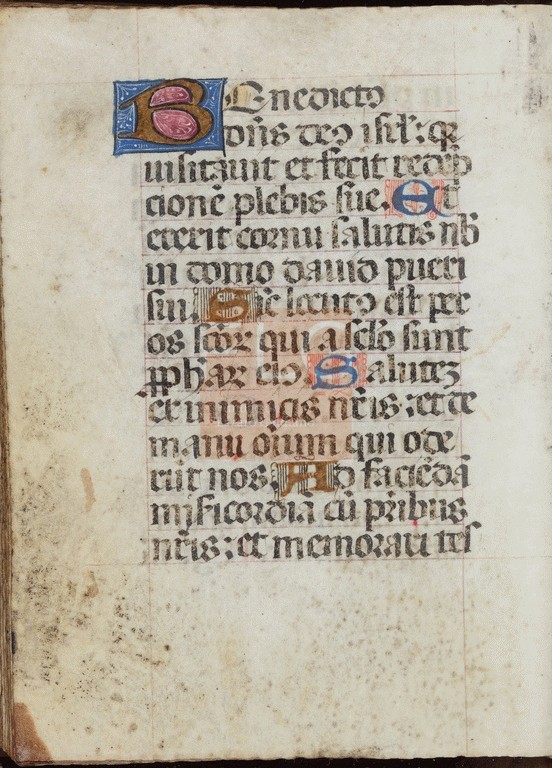 Benedictꝰ
dn̄s deꝰ isrl̄: qꝛ
uisitauit et fecit redēp
cionē plebis sue. Et
erexit cornu salutis nb̄
in domo dauid pueri
sui. Sic locutꝰ est per
os sc̄oꝝ qui a sc̄lo sunt
ꝓpħaꝝ eiꝰ. Salutez
ex inimicis nr̄is: et de
manu oīum qui ode
rūt nos. Ad faciēdā
misericordiā cū pr̄ibus
nr̄is: et memorari tes